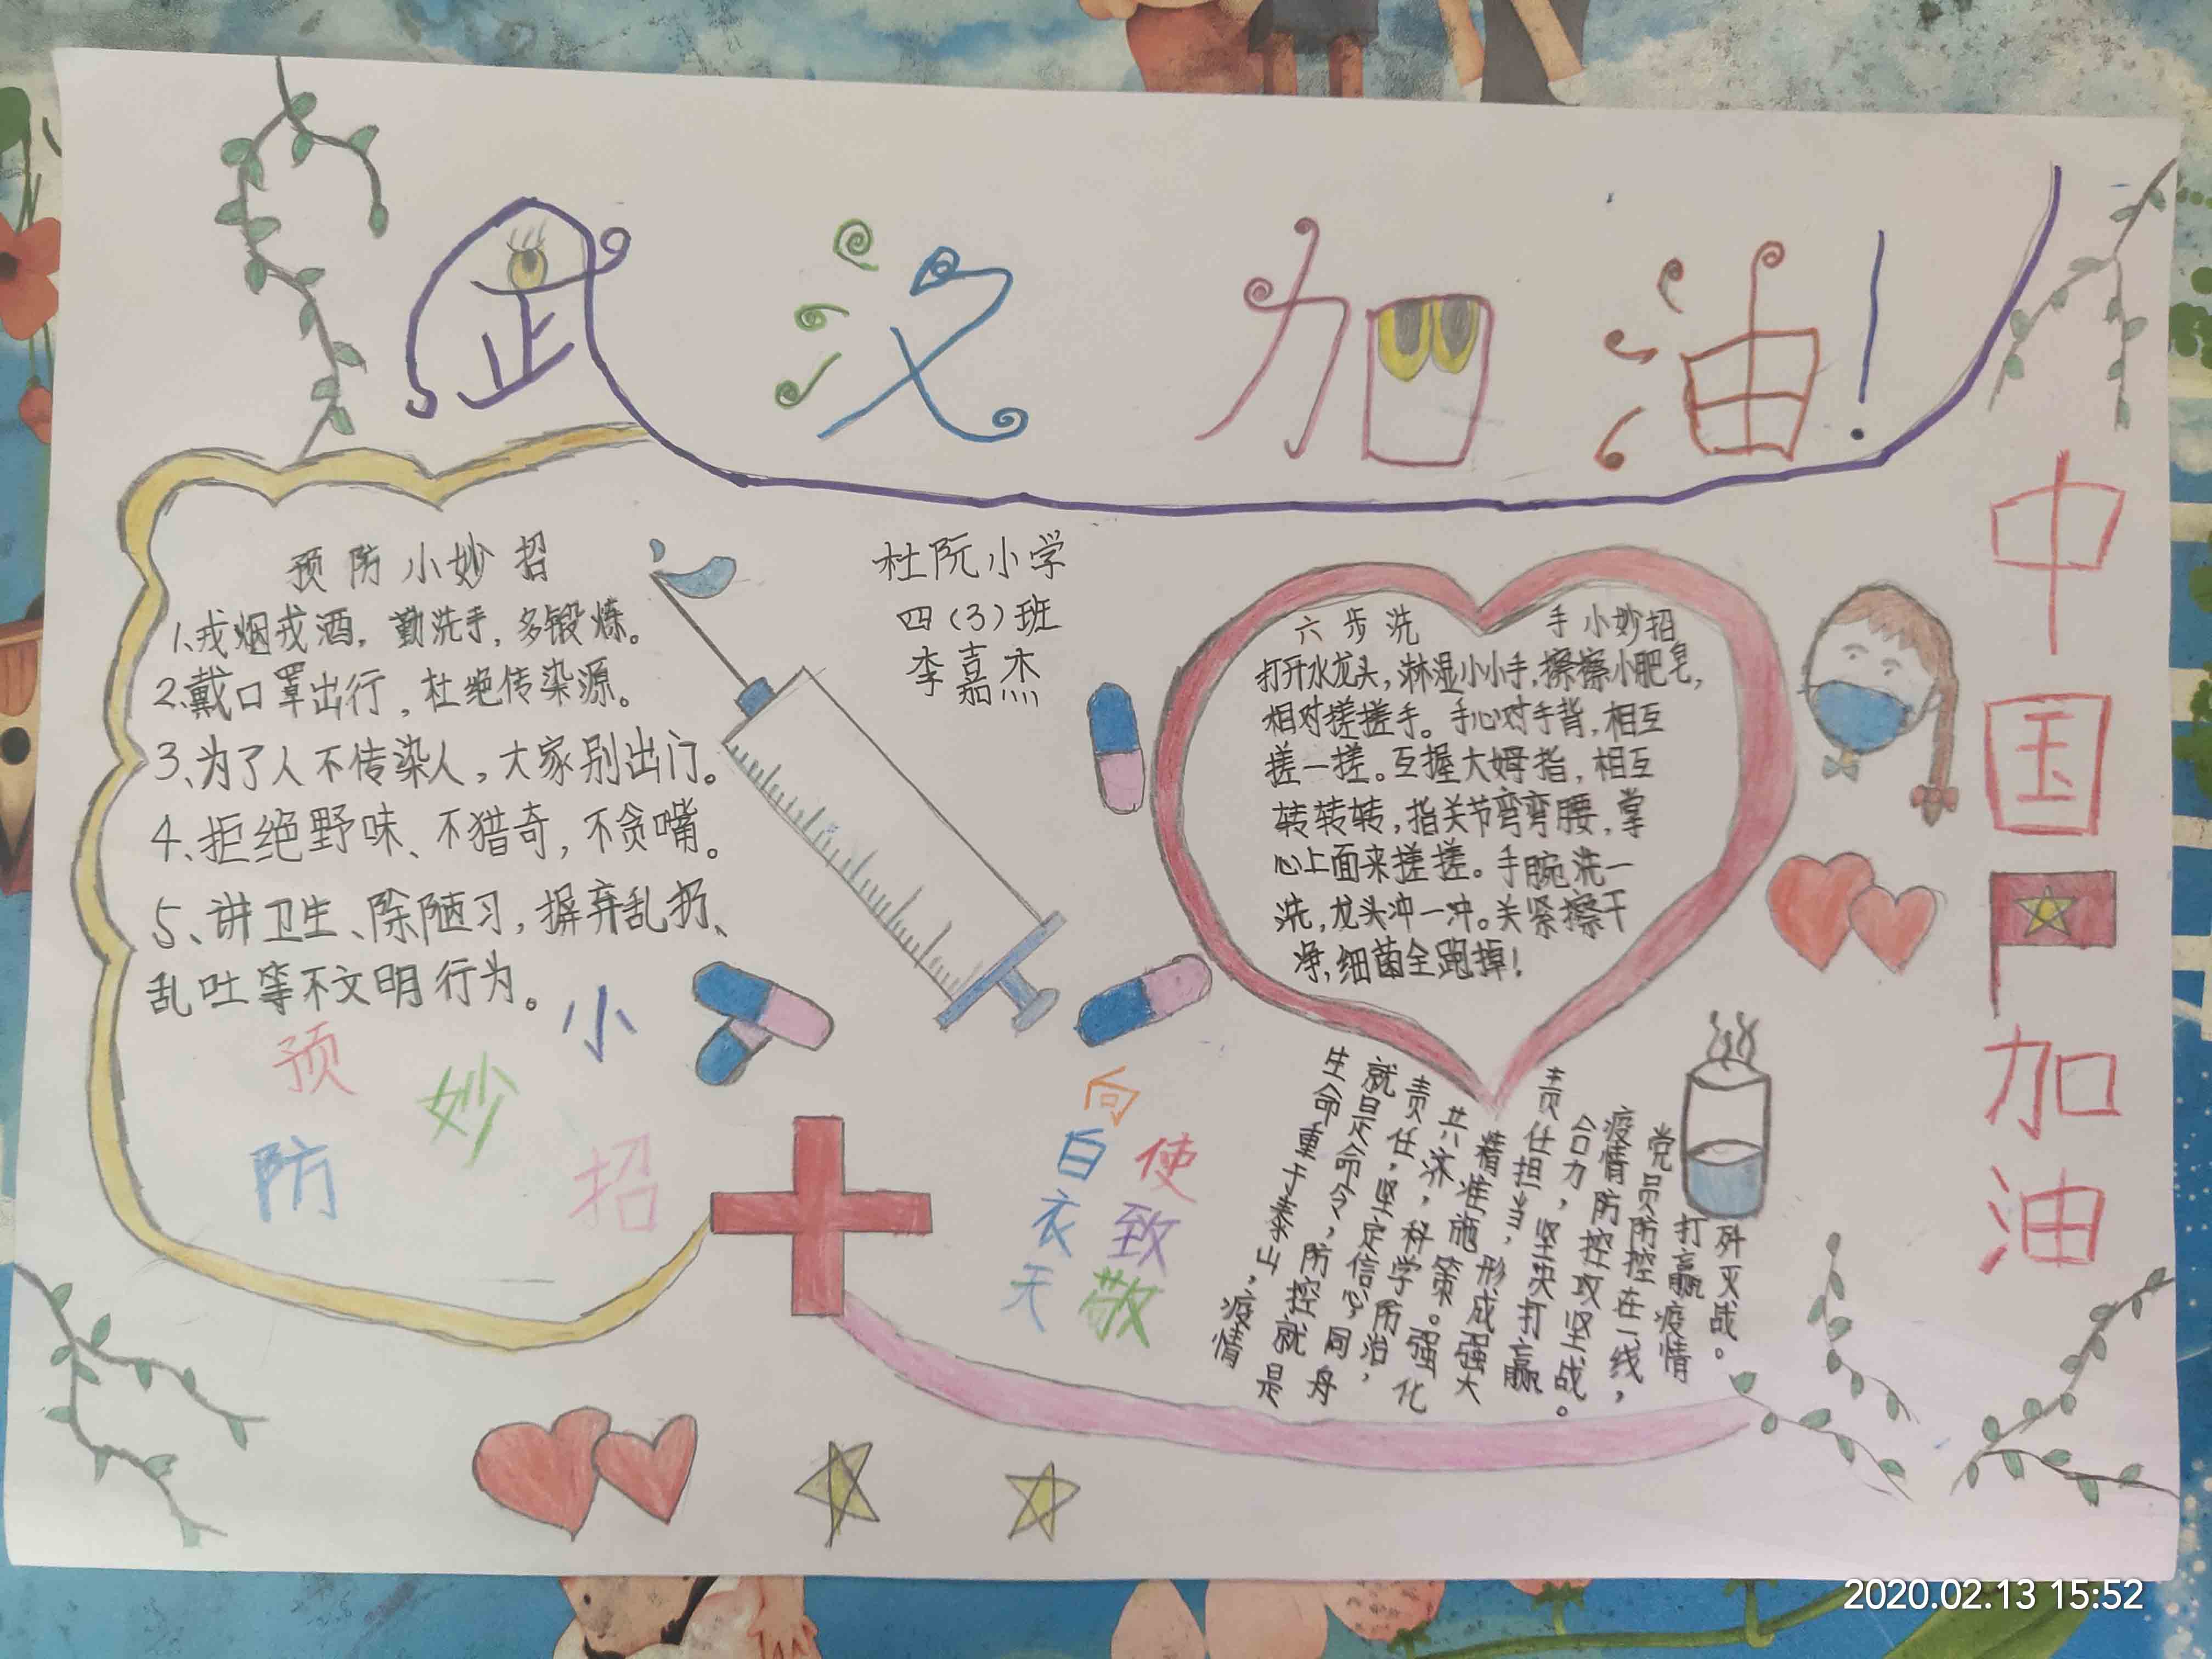 武汉加油!
预防小妙招
1、戎烟戎酒，勤洗手，多锻炼。
2、戴口罩出行，杜绝传染源。
3、为了人不传染人，大家别出门。
4、拒绝野味、不猎奇，不贪嘴。
5、讲卫生、除陋习，摒弃乱扔、
乱吐等不文明行为。
预防
小妙招
杜阮小学
四（3）班
李嘉杰
六步洗手小妙招
打开水龙头，淋湿小小手，擦擦小肥皂，
相对搓搓手。手心对手背，相互
搓一搓。互握大姆指，相互
转转转，指关节弯弯腰，掌
心上面来搓搓。手腕洗一
洗，龙头冲一冲。关紧擦干
净，细菌全跑掉！
向白衣天
使致敬
生命重于泰山。疫情
就是命令，防控就是
责任，坚定信心，同舟
共济，科学防治，
精准施策。强化
责任担当，形成强大
合力，坚决打赢
疫情防控攻坚战。
党员防控在一线，
打赢疫情
歼灭战。
中国加油
2020.02.13 15:52